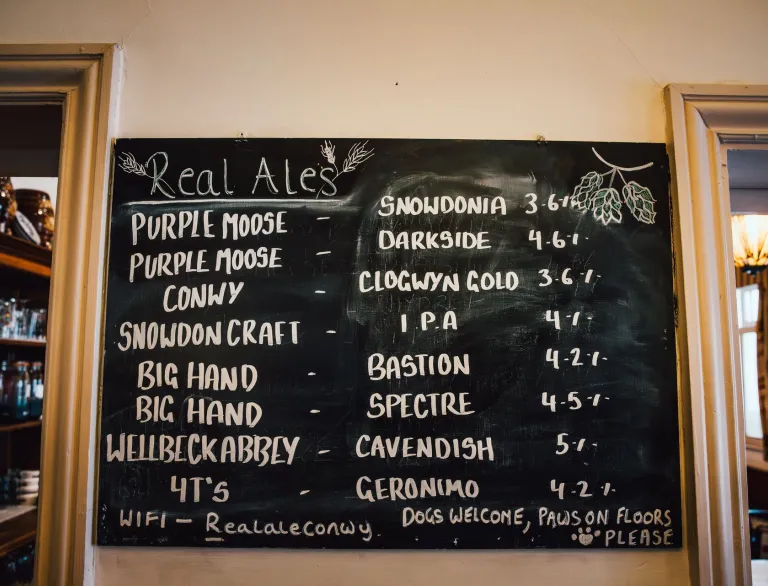 Real Ales
PURPLE MOOSE - SNOWDONIA 3.6%
PURPLE MOOSE - DARKSIDE 4.6%
CONWY - CLOGWYN GOLD 3.6%
SNOWDON CRAFT - IPA 4%
BIG HAND - BASTION 4.2%
BIG HAND - SPECTRE 4.5%
WELLBECK ABBEY - CAVENDISH 5%
4T'S - GERONIMO 4.2%
WIFI - Realaleconwy DOGS WELCOME, PAWS ON FLOORS
PLEASE